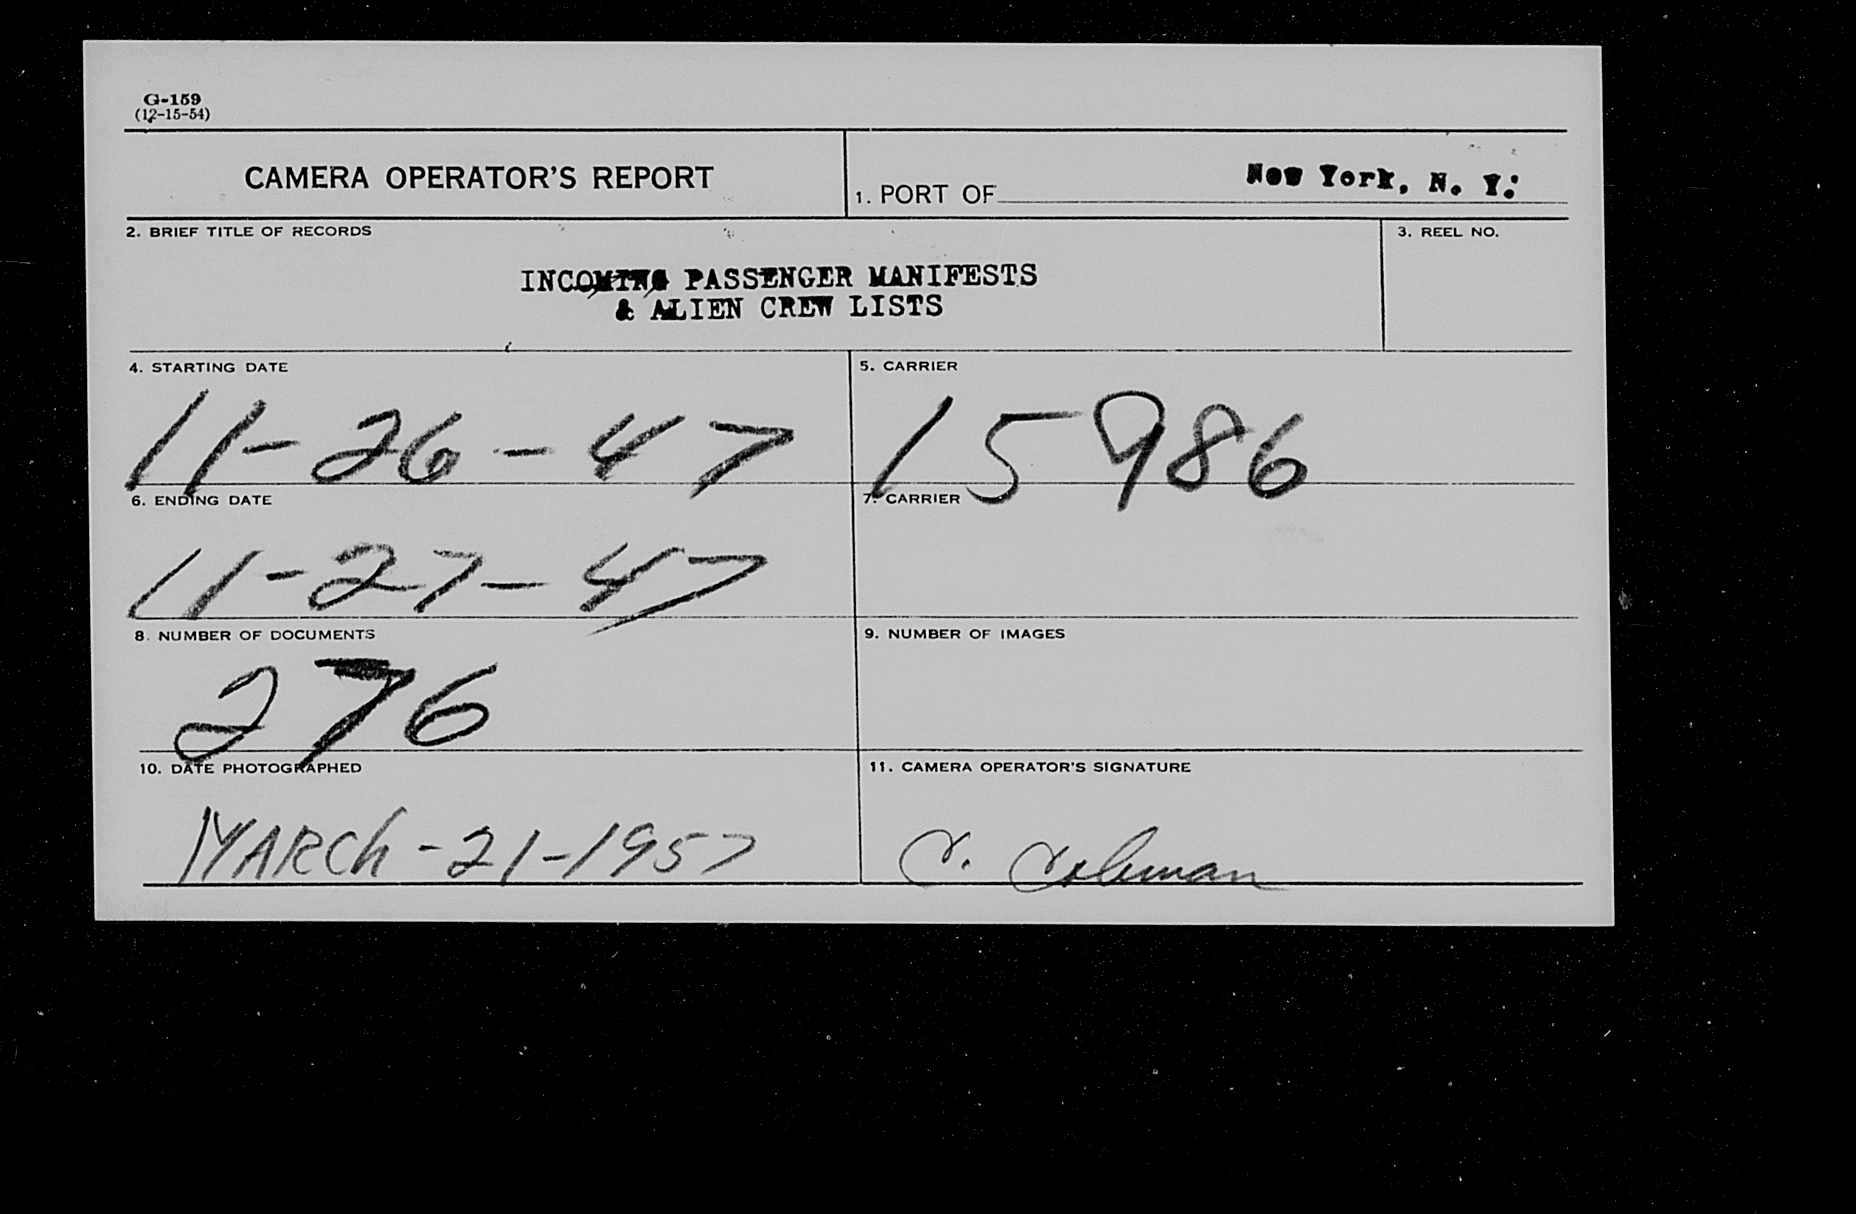 G-159
(12-15-54)
CAMERA OPERATOR'S REPORT
1. PORT OF New York, N. Y.
2. BRIEF TITLE OF RECORDS
3. REEL NO.
INCOMING PASSENGER MANIFESTS
& ALIEN CREW LISTS
4. STARTING DATE
5. CARRIER
11-26-47
15986
6. ENDING DATE
7. CARRIER
11-27-47
8. NUMBER OF DOCUMENTS
9. NUMBER OF IMAGES
276
10. DATE PHOTOGRAPHED
11. CAMERA OPERATOR'S SIGNATURE
MARCh-21-1957
C. Coleman